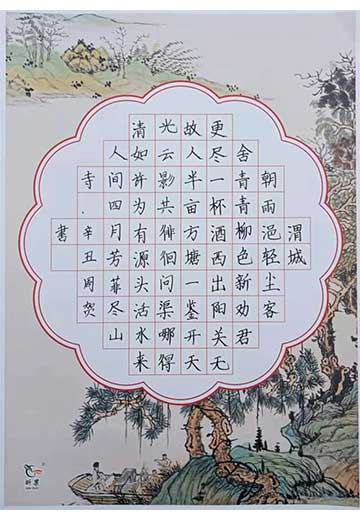 渭城
朝雨浥轻尘客
舍青青柳色新劝君
更尽一杯酒西出阳关无
故人半亩方塘一鉴开天
光云影共徘徊问渠哪得
清如许为有源头活水来
人间四月芳菲尽山
寺·辛丑周贺
書